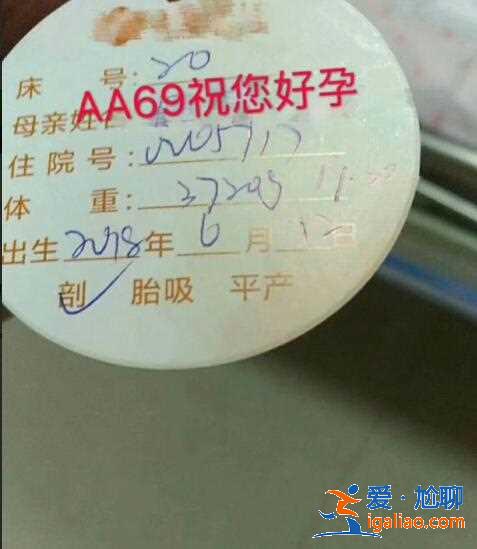 床 号：20
AA69祝您好孕
母亲姓名
住院号：
体 重：
出生2018年6月12日
剖 胎吸 平产
爱·尬聊
igaliao.com